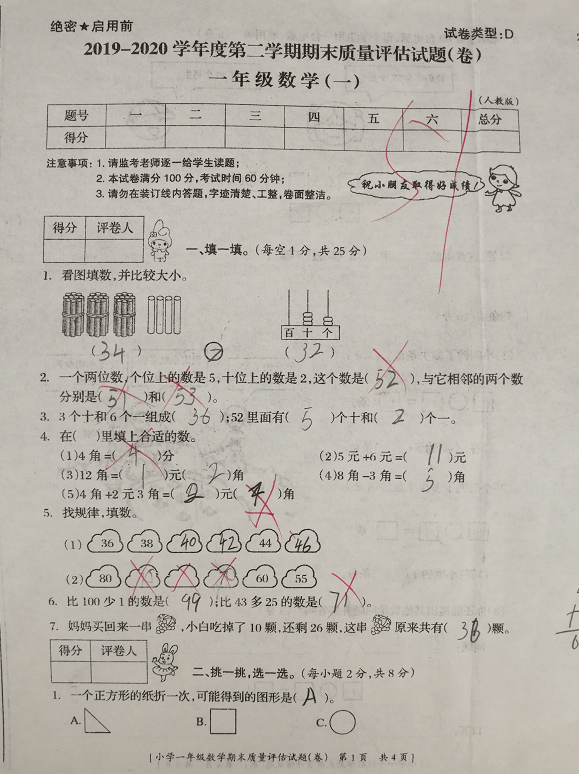 绝密★启用前
试卷类型:D
2019-2020 学年度第二学期期末质量评估试题(卷)
一年级数学(一)
(人教版)
题号 一 二 三 四 五 六 总分
得分
注意事项:1. 请监考老师逐一给学生读题;
2. 本试卷满分 100 分,考试时间 60 分钟;
3. 请勿在装订线内答题,字迹清楚、工整,卷面整洁。
祝小朋友取得好成绩!
得分 评卷人
一、填一填。(每空 1 分,共 25 分)
1. 看图填数,并比较大小。
百 十 个
(34) > (32)
2. 一个两位数,个位上的数是 5,十位上的数是 2,这个数是( 52 ),与它相邻的两个数
分别是( 51 )和( 53 )。
3. 3 个十和 6 个一组成( 36 );52 里面有( 5 )个十和( 2 )个一。
4. 在( )里填上合适的数。
(1)4 角=( 4 )分 (2)5 元+6 元=( 11 )元
(3)12 角=( 1 )元( 2 )角 (4)8 角-3 角=( 5 )角
(5)4 角+2 元 3 角=( 2 )元( )角
5. 找规律,填数。
(1) 36 38 40 42 44 46
(2) 80 60 55
6. 比 100 少 1 的数是( 99 );比 43 多 25 的数是( 71 )。
7. 妈妈买回来一串 ,小白吃掉了 10 颗,还剩 26 颗,这串 原来共有( 36 )颗。
得分 评卷人
二、挑一挑,选一选。(每小题 2 分,共 8 分)
1. 一个正方形的纸折一次,可能得到的图形是( A )。
A. B. C.
[小学一年级数学期末质量评估试题(卷) 第 1 页 共 4 页]